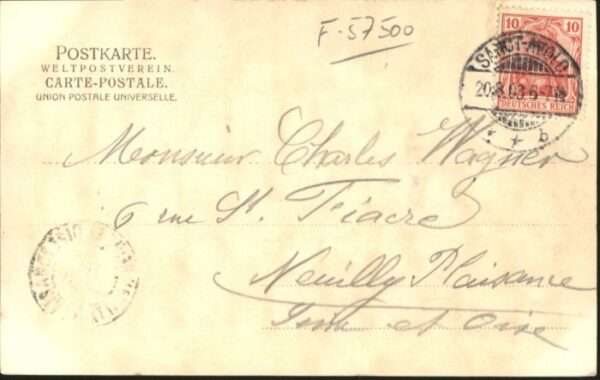 F-57500
POSTKARTE.
WELTPOSTVEREIN.
CARTE-POSTALE.
UNION POSTALE UNIVERSELLE.
10 10
DEUTSCHES REICH
SANCT-AVOLD
20.8.03.6-7N
* b
Monsieur Charles Wagner
6 rue St. Fiacre
Neuilly Plaisance
Seine et Oise